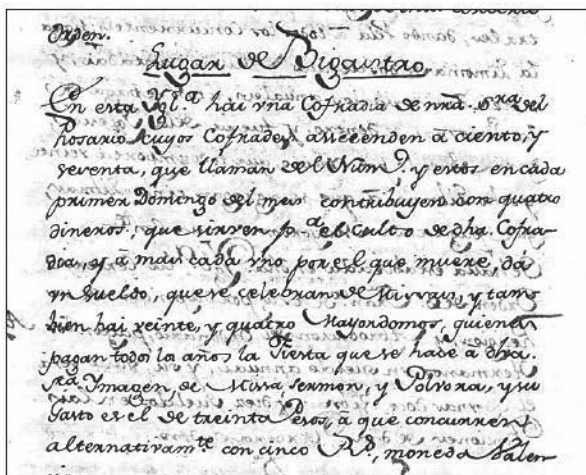 Orden.
Lugar de Bigastro.
En esta Ygl.ª hai vna Cofradia de nrã. Srã. del
Rosario, cuyos Cofrades ascenden à ciento, y
setenta, que llaman del Num.º y estos en cada
primer Domingo del mes contribuyen con quatro
dineros, que sirven p.ª el Culto de dhã. Cofra-
dia, y à mas cada vno por el que muere, dà
vn sueldo, que se celebran de Missas, y tam-
bien hai veinte, y quatro Mayordomos, quienes
pagan todos los años la Fiesta que se hace à dhã.
Srã. Ymagen, de Missa, sermon, y Polvora, y su
Gasto es el de treinta Pesos, à que concurren
alternativam.te con cinco R.s, moneda Valen